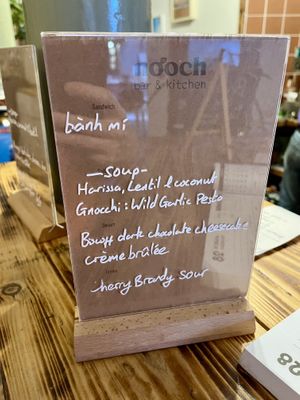 nooch
bar & kitchen
Sandwich
bành mí
—SOUP—
Harissa, Lentil & coconut
Gnocchi: Wild Garlic Pesto
dark chocolate cheesecake
crème brûlée
herry Brandy Sour
28